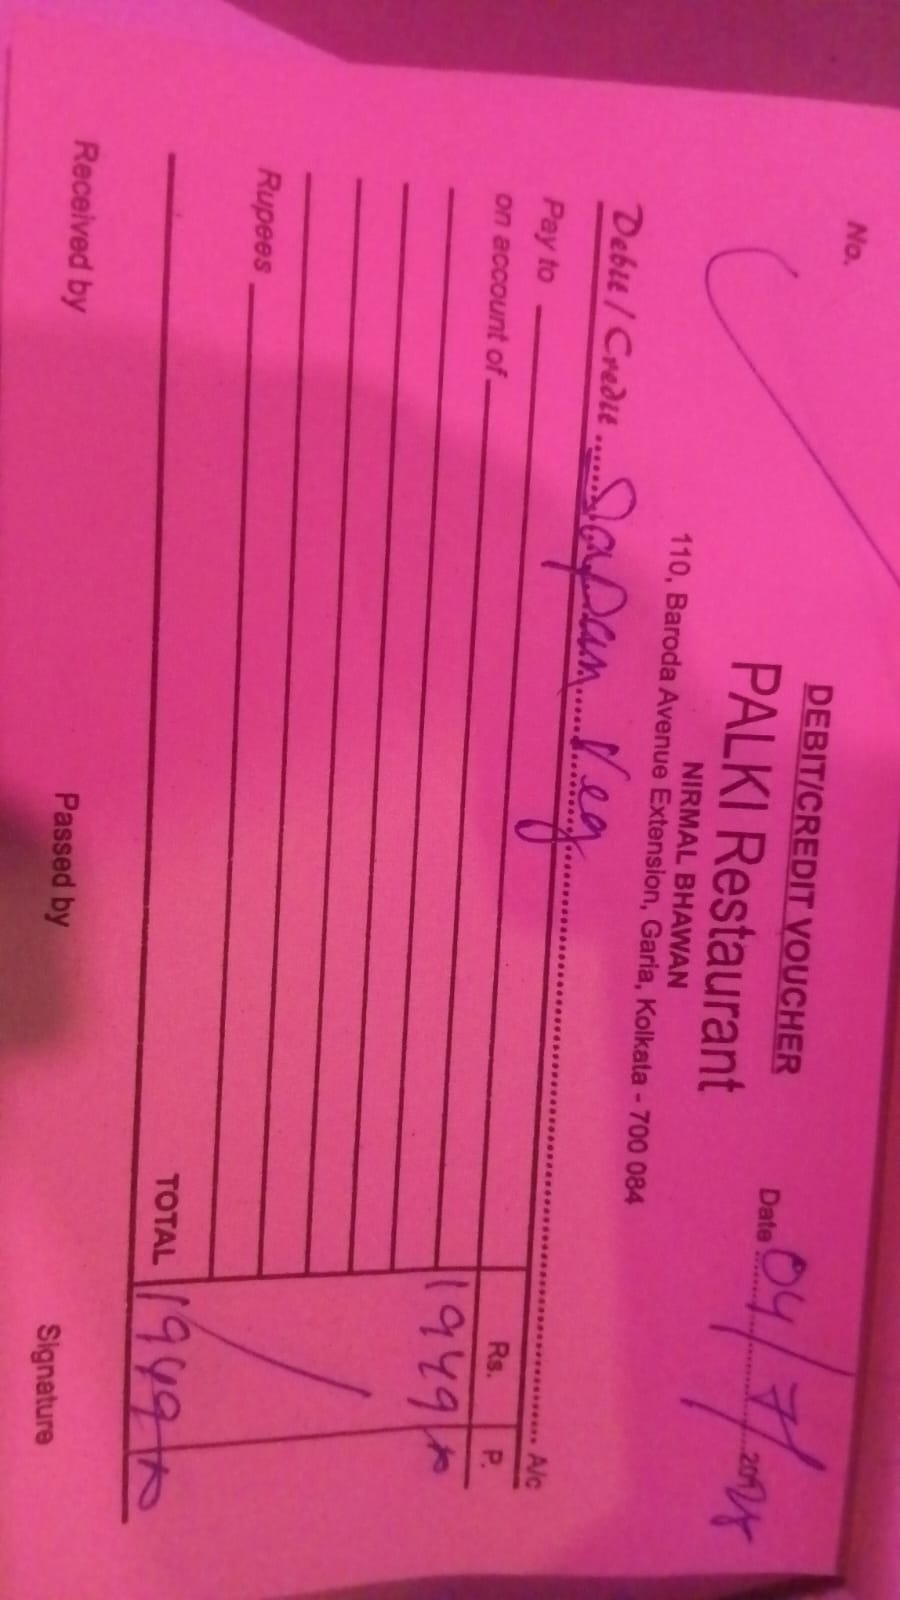 No.
DEBIT/CREDIT VOUCHER
PALKI Restaurant
NIRMAL BHAWAN
110, Baroda Avenue Extension, Garia, Kolkata - 700 084
Date 04/7/20
Debit / Credit Sapan Veg A/c
Pay to
on account of
Rs. P.
1949
Rupees
TOTAL 1949
Received by Passed by Signature